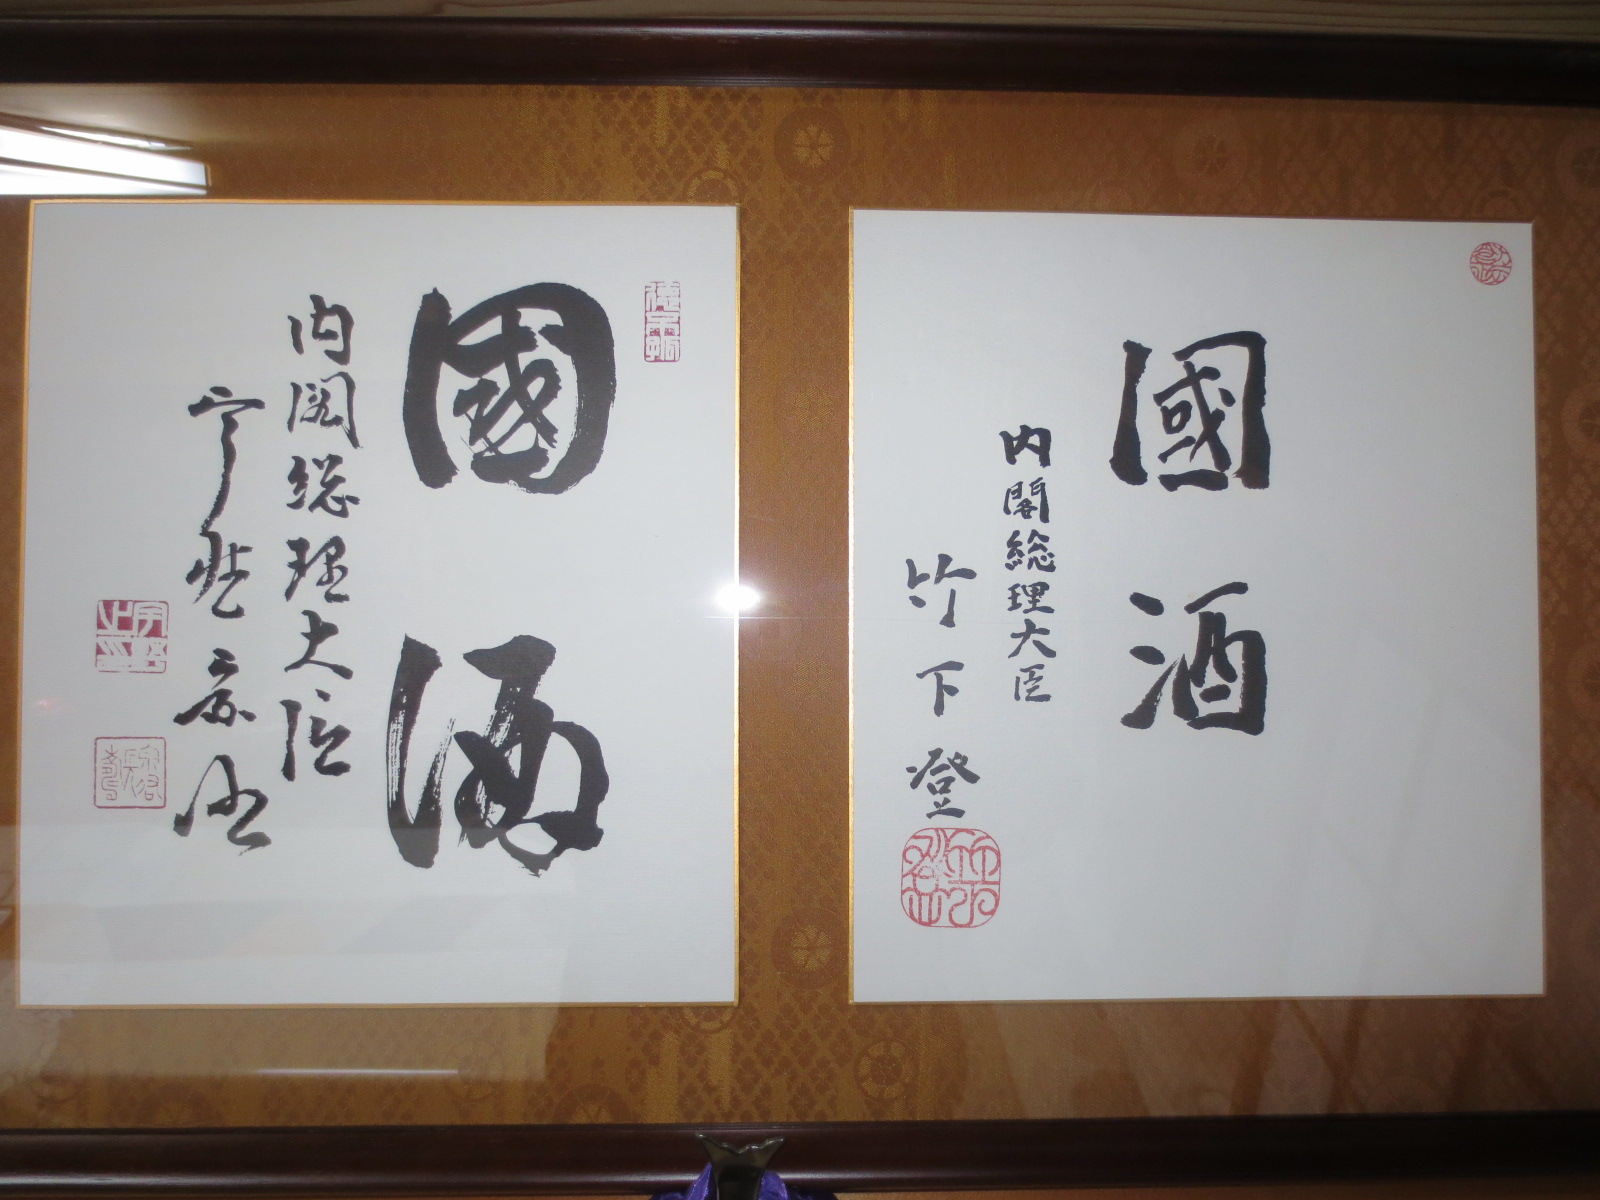 國酒
内閣総理大臣
竹下登
國酒
内閣総理大臣
宇野宗佑